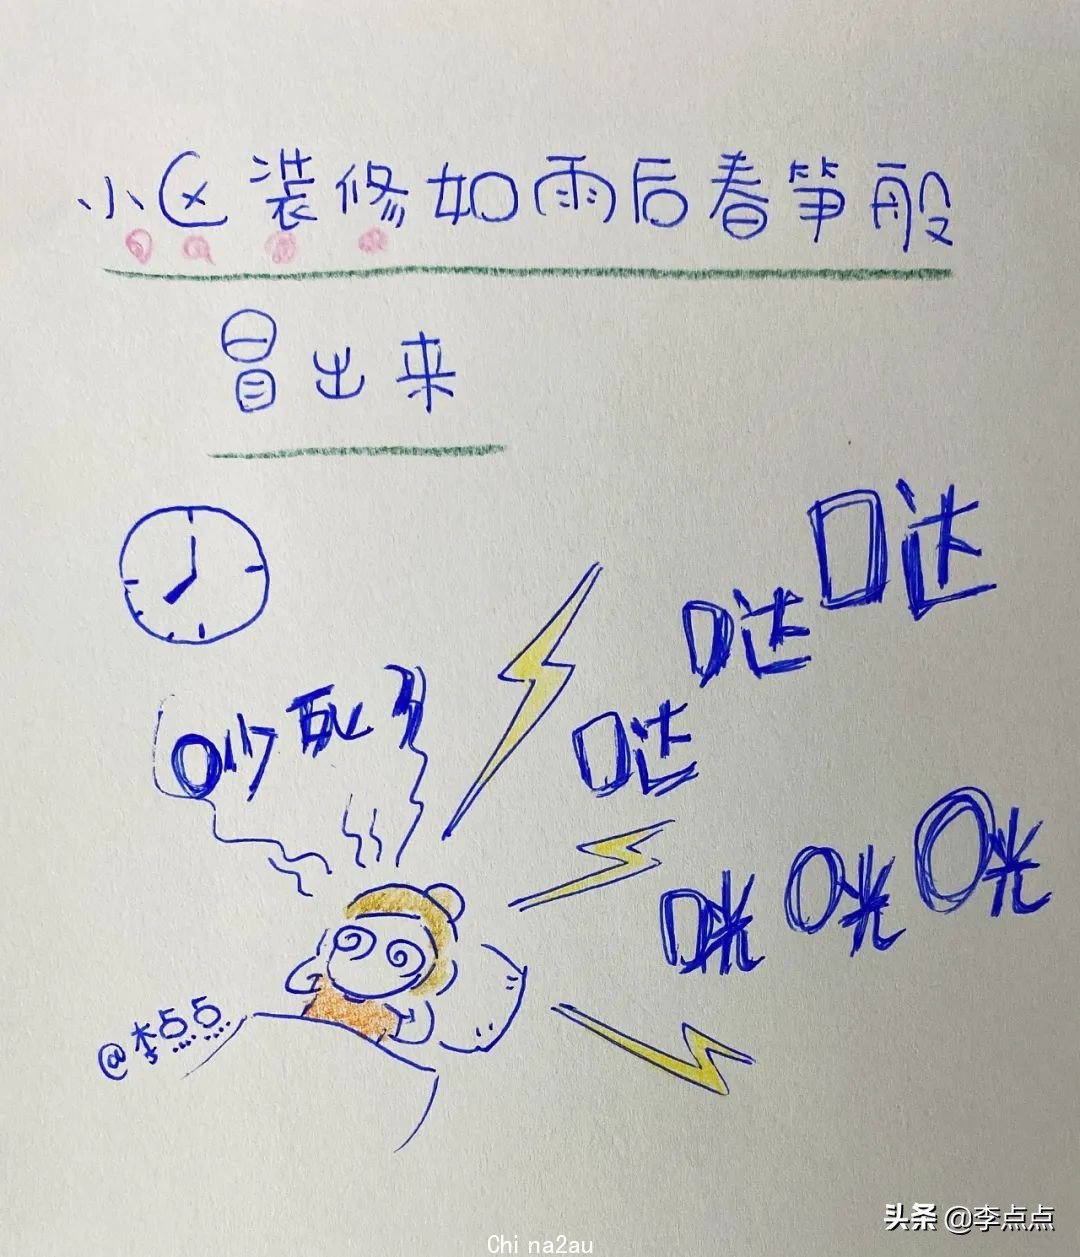 小区装修如雨后春笋般
冒出来
吵死了
哒哒哒
咣咣咣
@李点点
头条 @李点点
Chi na2au